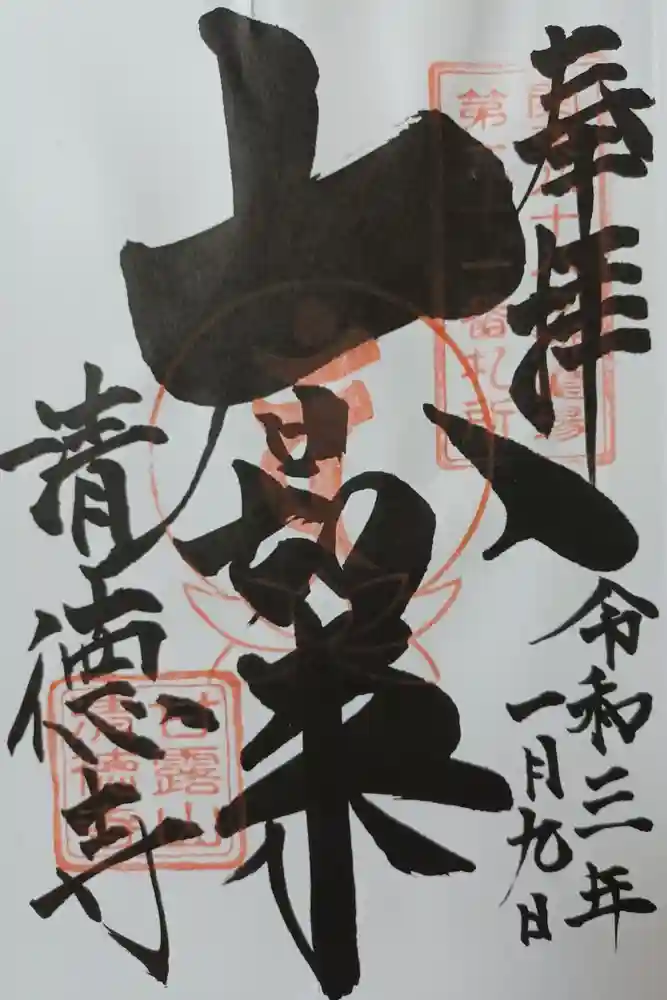 奉拝
令和三年
一月九日
大日如来
清徳寺
番札所
甘露山
清徳寺